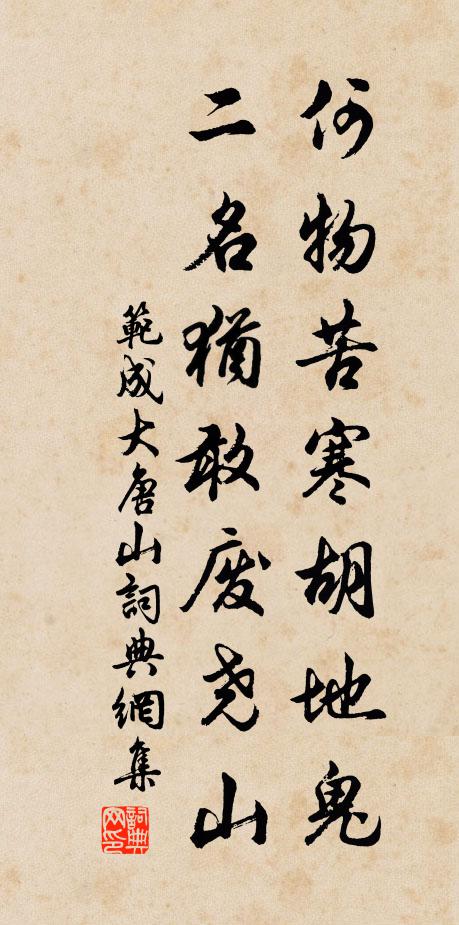 何物苦寒胡地鬼
二名猶敢廢尧山
範成大唐山詞典網集
詞典网印